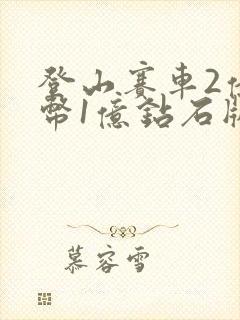 登山賽車2
幣1億鈷石
慕容雪